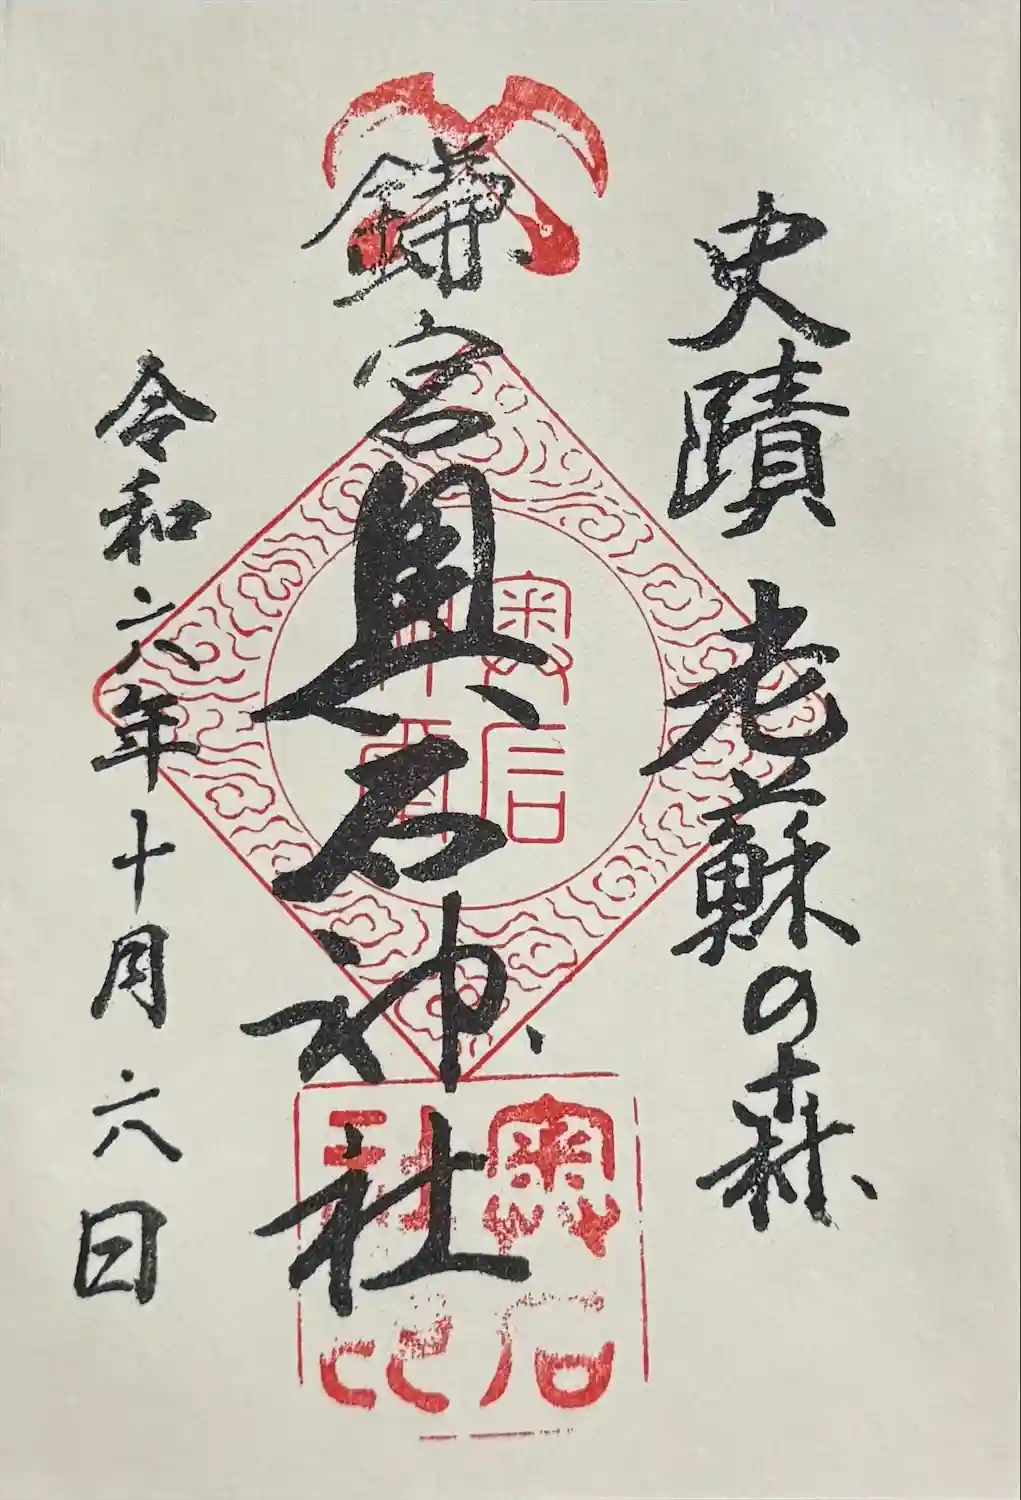 史蹟 老蘇の森
鎌宮奥石神社
令和六年十月六日
奥石
神社